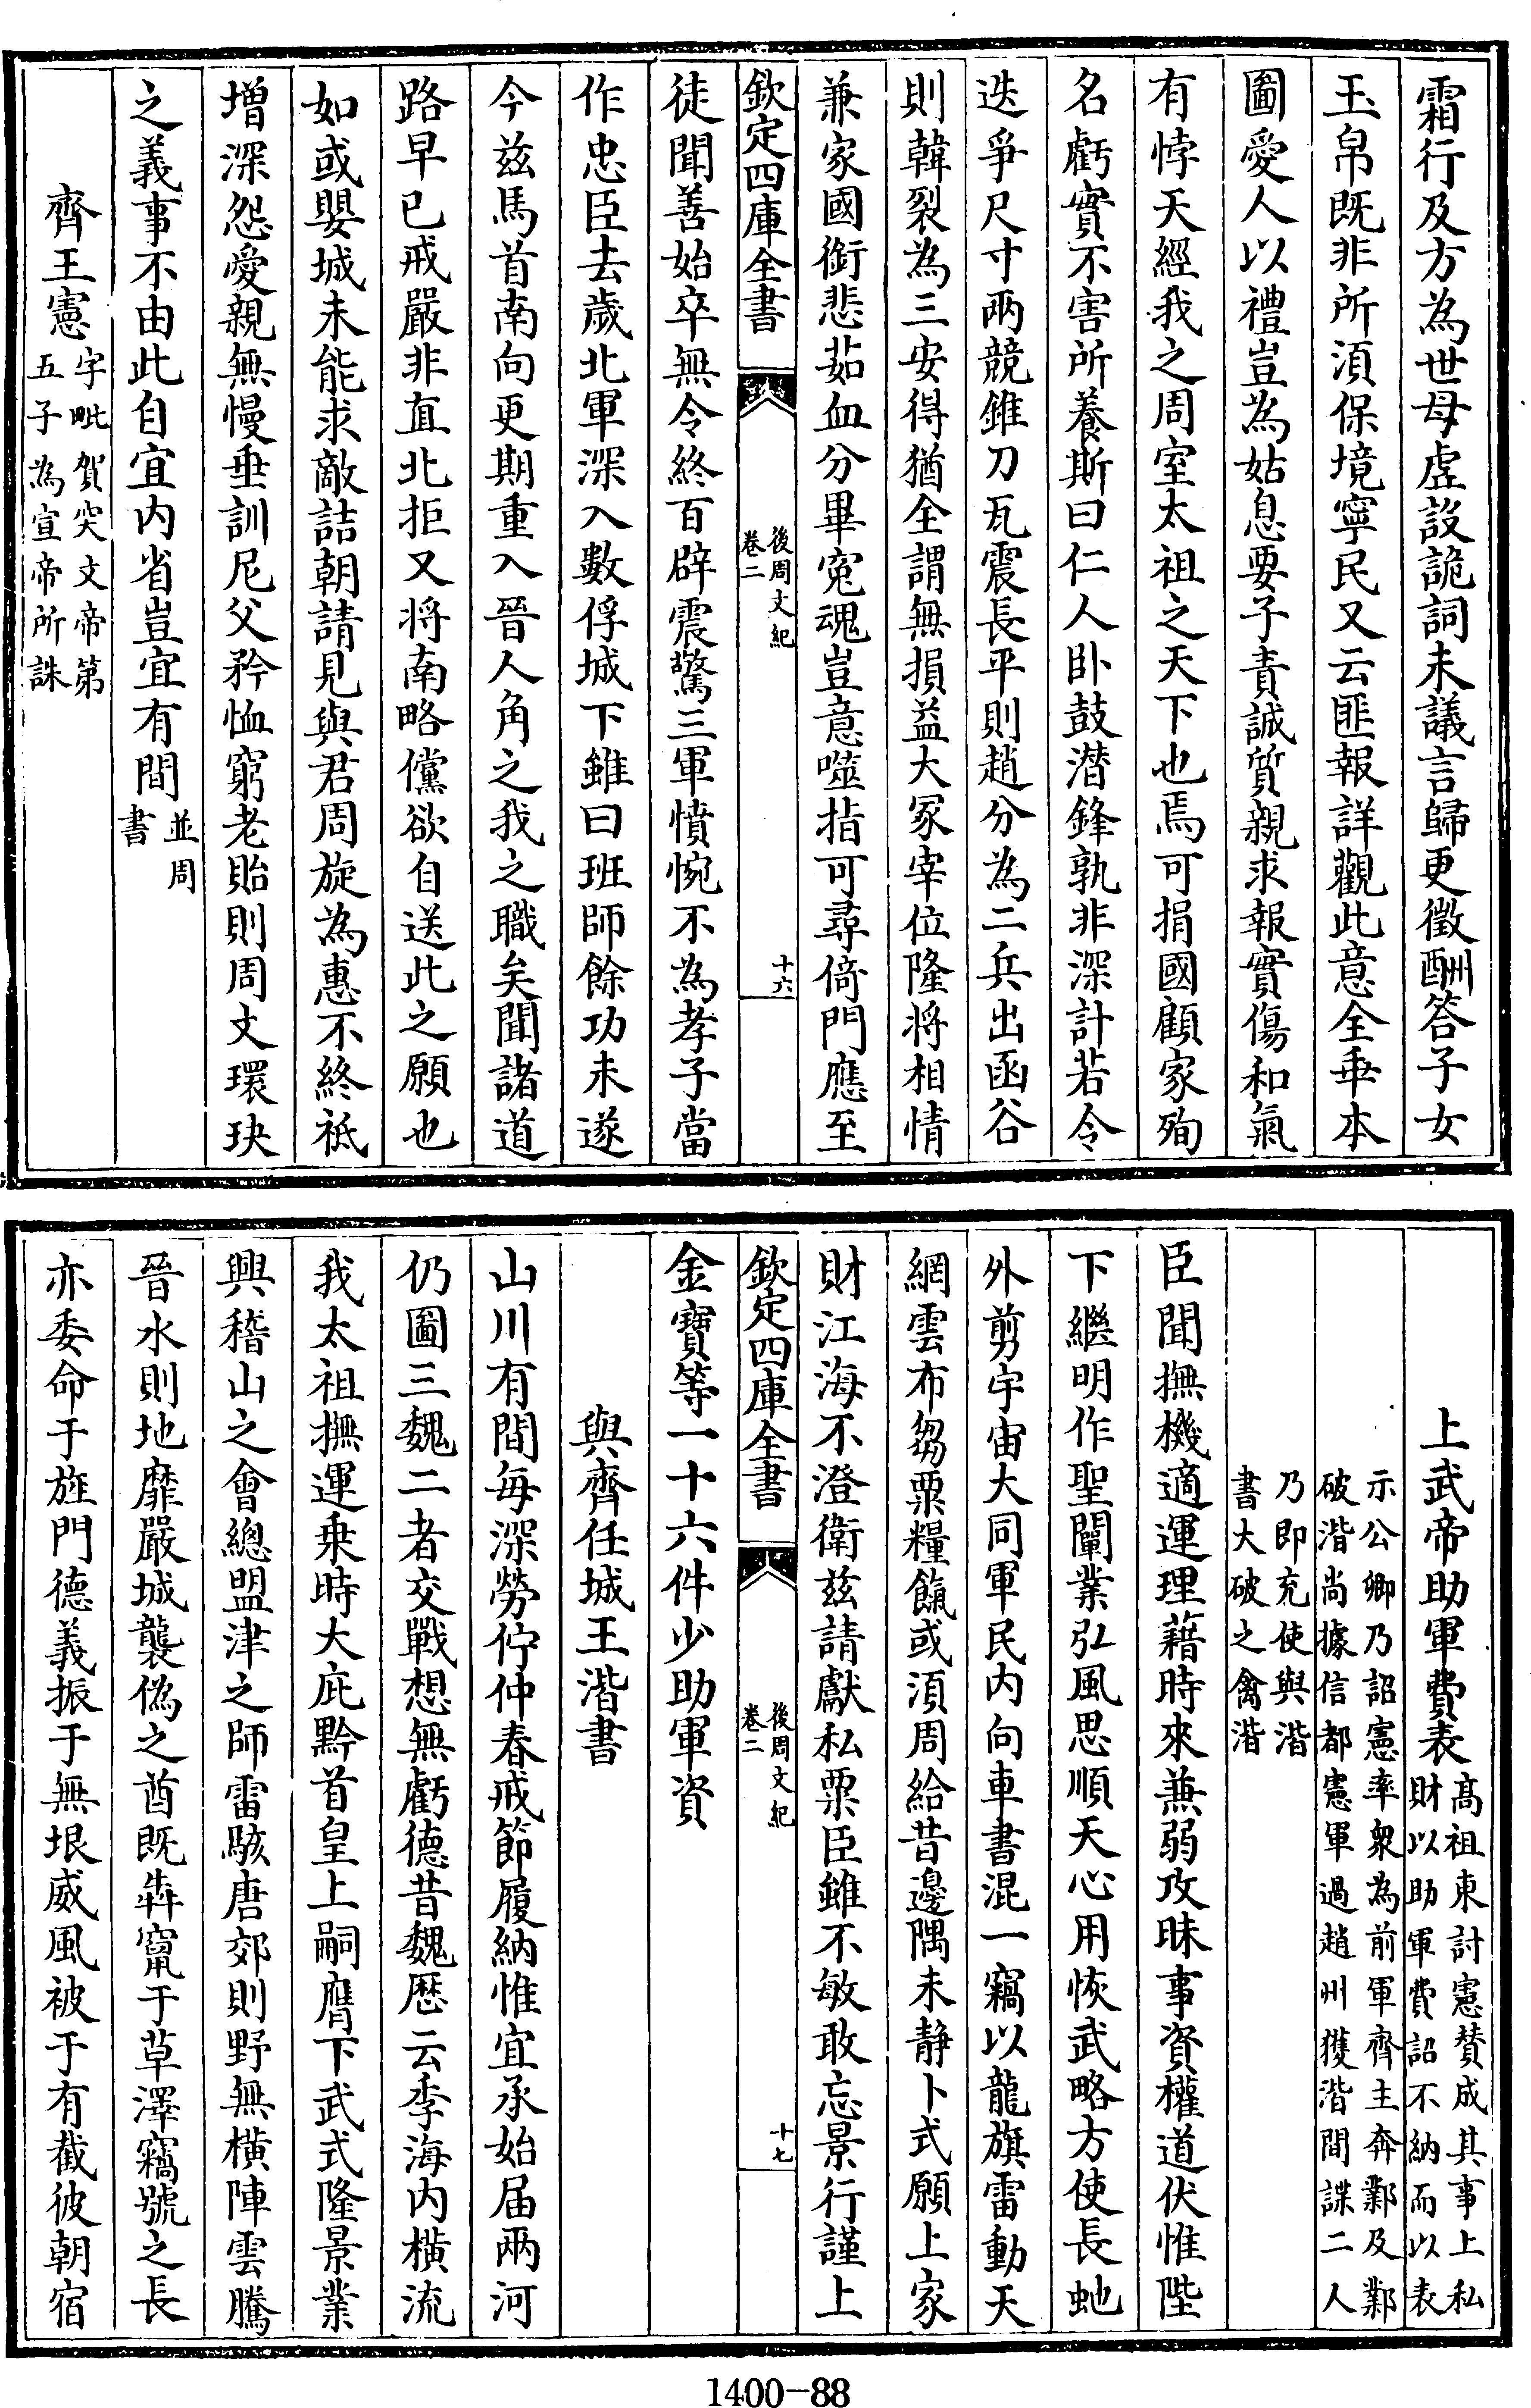 霜行及方為世母虚設詭詞未議言歸更徵酬答子女
玉帛既非所湏保境寧民又云匪報詳觀此意全乖本
圖愛人以禮豈為姑息要子責誠質親求報實傷和氣
有悖天經我之周室太祖之天下也焉可捐國顧家殉
名虧實不害所養斯曰仁人卧鼓潛鋒孰非深計若令
迭爭尺寸兩競錐刀瓦震長平則趙分為二兵出函谷
則韓裂為三安得猶全謂無損益大冢宰位隆将相情
兼家國銜悲茹血分畢寃魂豈意噬指可尋倚門應至
欽定四庫全書
後周文紀
卷二
十六
徒聞善始卒無令終百辟震驚三軍憤惋不為孝子當
作忠臣去歲北軍深入數俘城下雖曰班師餘功未遂
今兹馬首南向更期重入晉人角之我之職矣聞諸道
路早已戒嚴非直北拒又将南略儻欲自送此之願也
如或嬰城未能求敵詰朝請見與君周旋為惠不終祗
增深怨愛親無慢垂訓尼父矜恤窮老貽則周文環玦
之義事不由此自宜内省豈宜有間
並周
書
齊王憲
字毗賀突文帝第
五子為宣帝所誅
上武帝助軍費表
髙祖東討憲賛成其事上私
財以助軍費詔不納而以表
示公卿乃詔憲率衆為前軍齊主奔鄴及鄴
破湝尚據信都憲軍過趙州獲湝間諜二人
乃即充使與湝
書大破之禽湝
臣聞撫機適運理藉時來兼弱攻昧事資權道伏惟陛
下繼明作聖闡業弘風思順天心用恢武略方使長虵
外剪宇宙大同軍民内向車書混一竊以龍旗雷動天
網雲布芻粟糧餼或湏周給昔邊隅未静卜式願上家
財江海不澄衛兹請獻私粟臣雖不敏敢忘景行謹上
欽定四庫全書
後周文紀
卷二
十七
金寶等一十六件少助軍資
與齊任城王湝書
山川有間每深勞佇仲春戒節履納惟宜承始届兩河
仍圖三魏二者交戰想無虧德昔魏歴云季海内横流
我太祖撫運乗時大庇黔首皇上嗣膺下武式隆景業
興稽山之會總盟津之師雷駭唐郊則野無横陣雲騰
晉水則地靡嚴城襲偽之酋既犇竄于草澤竊號之長
亦委命于旌門德義振于無垠威風被于有截彼朝宿
1400-88